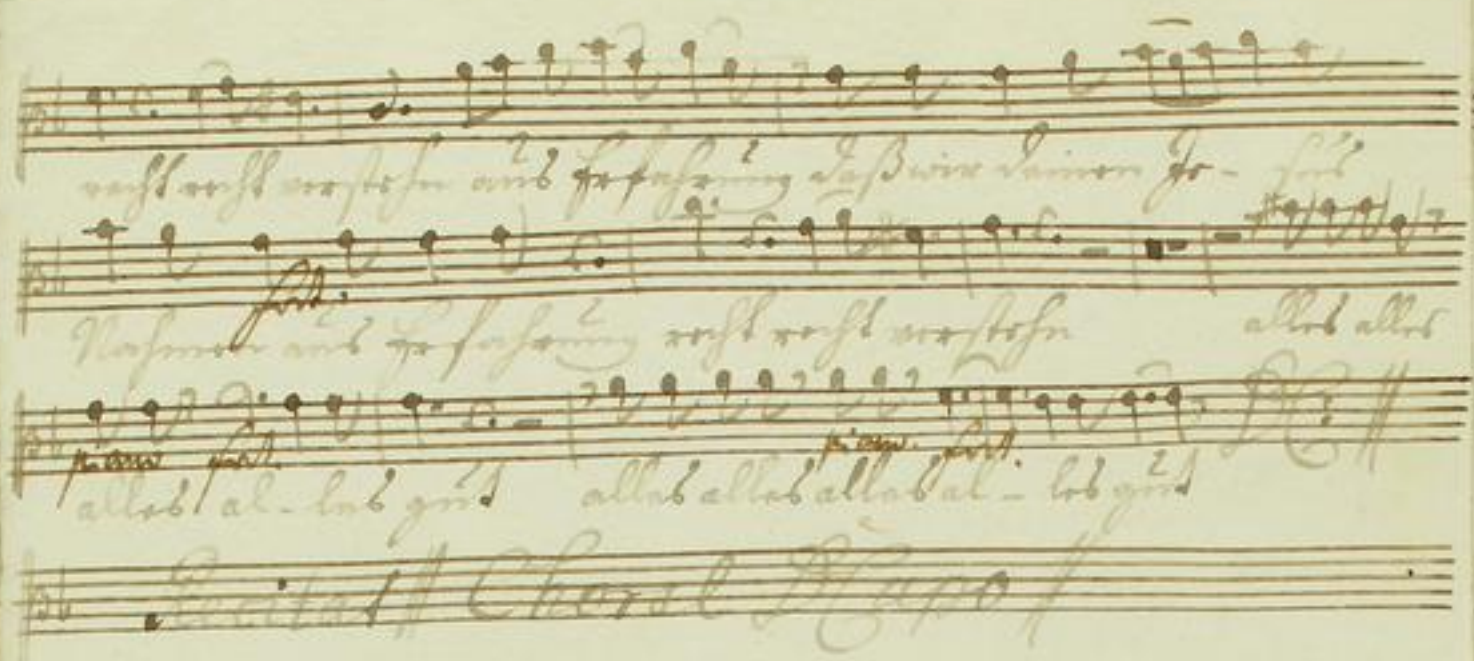 recht recht verstehn aus Erfahrung daß wir deinen Je- sus
fort.
Nahmen aus Erfahrung recht recht verstehn alles alles
DC:
piano fort. piano. fort.
alles al- les gut alles alles alles al- les gut
Recitat // Choral DCapo //